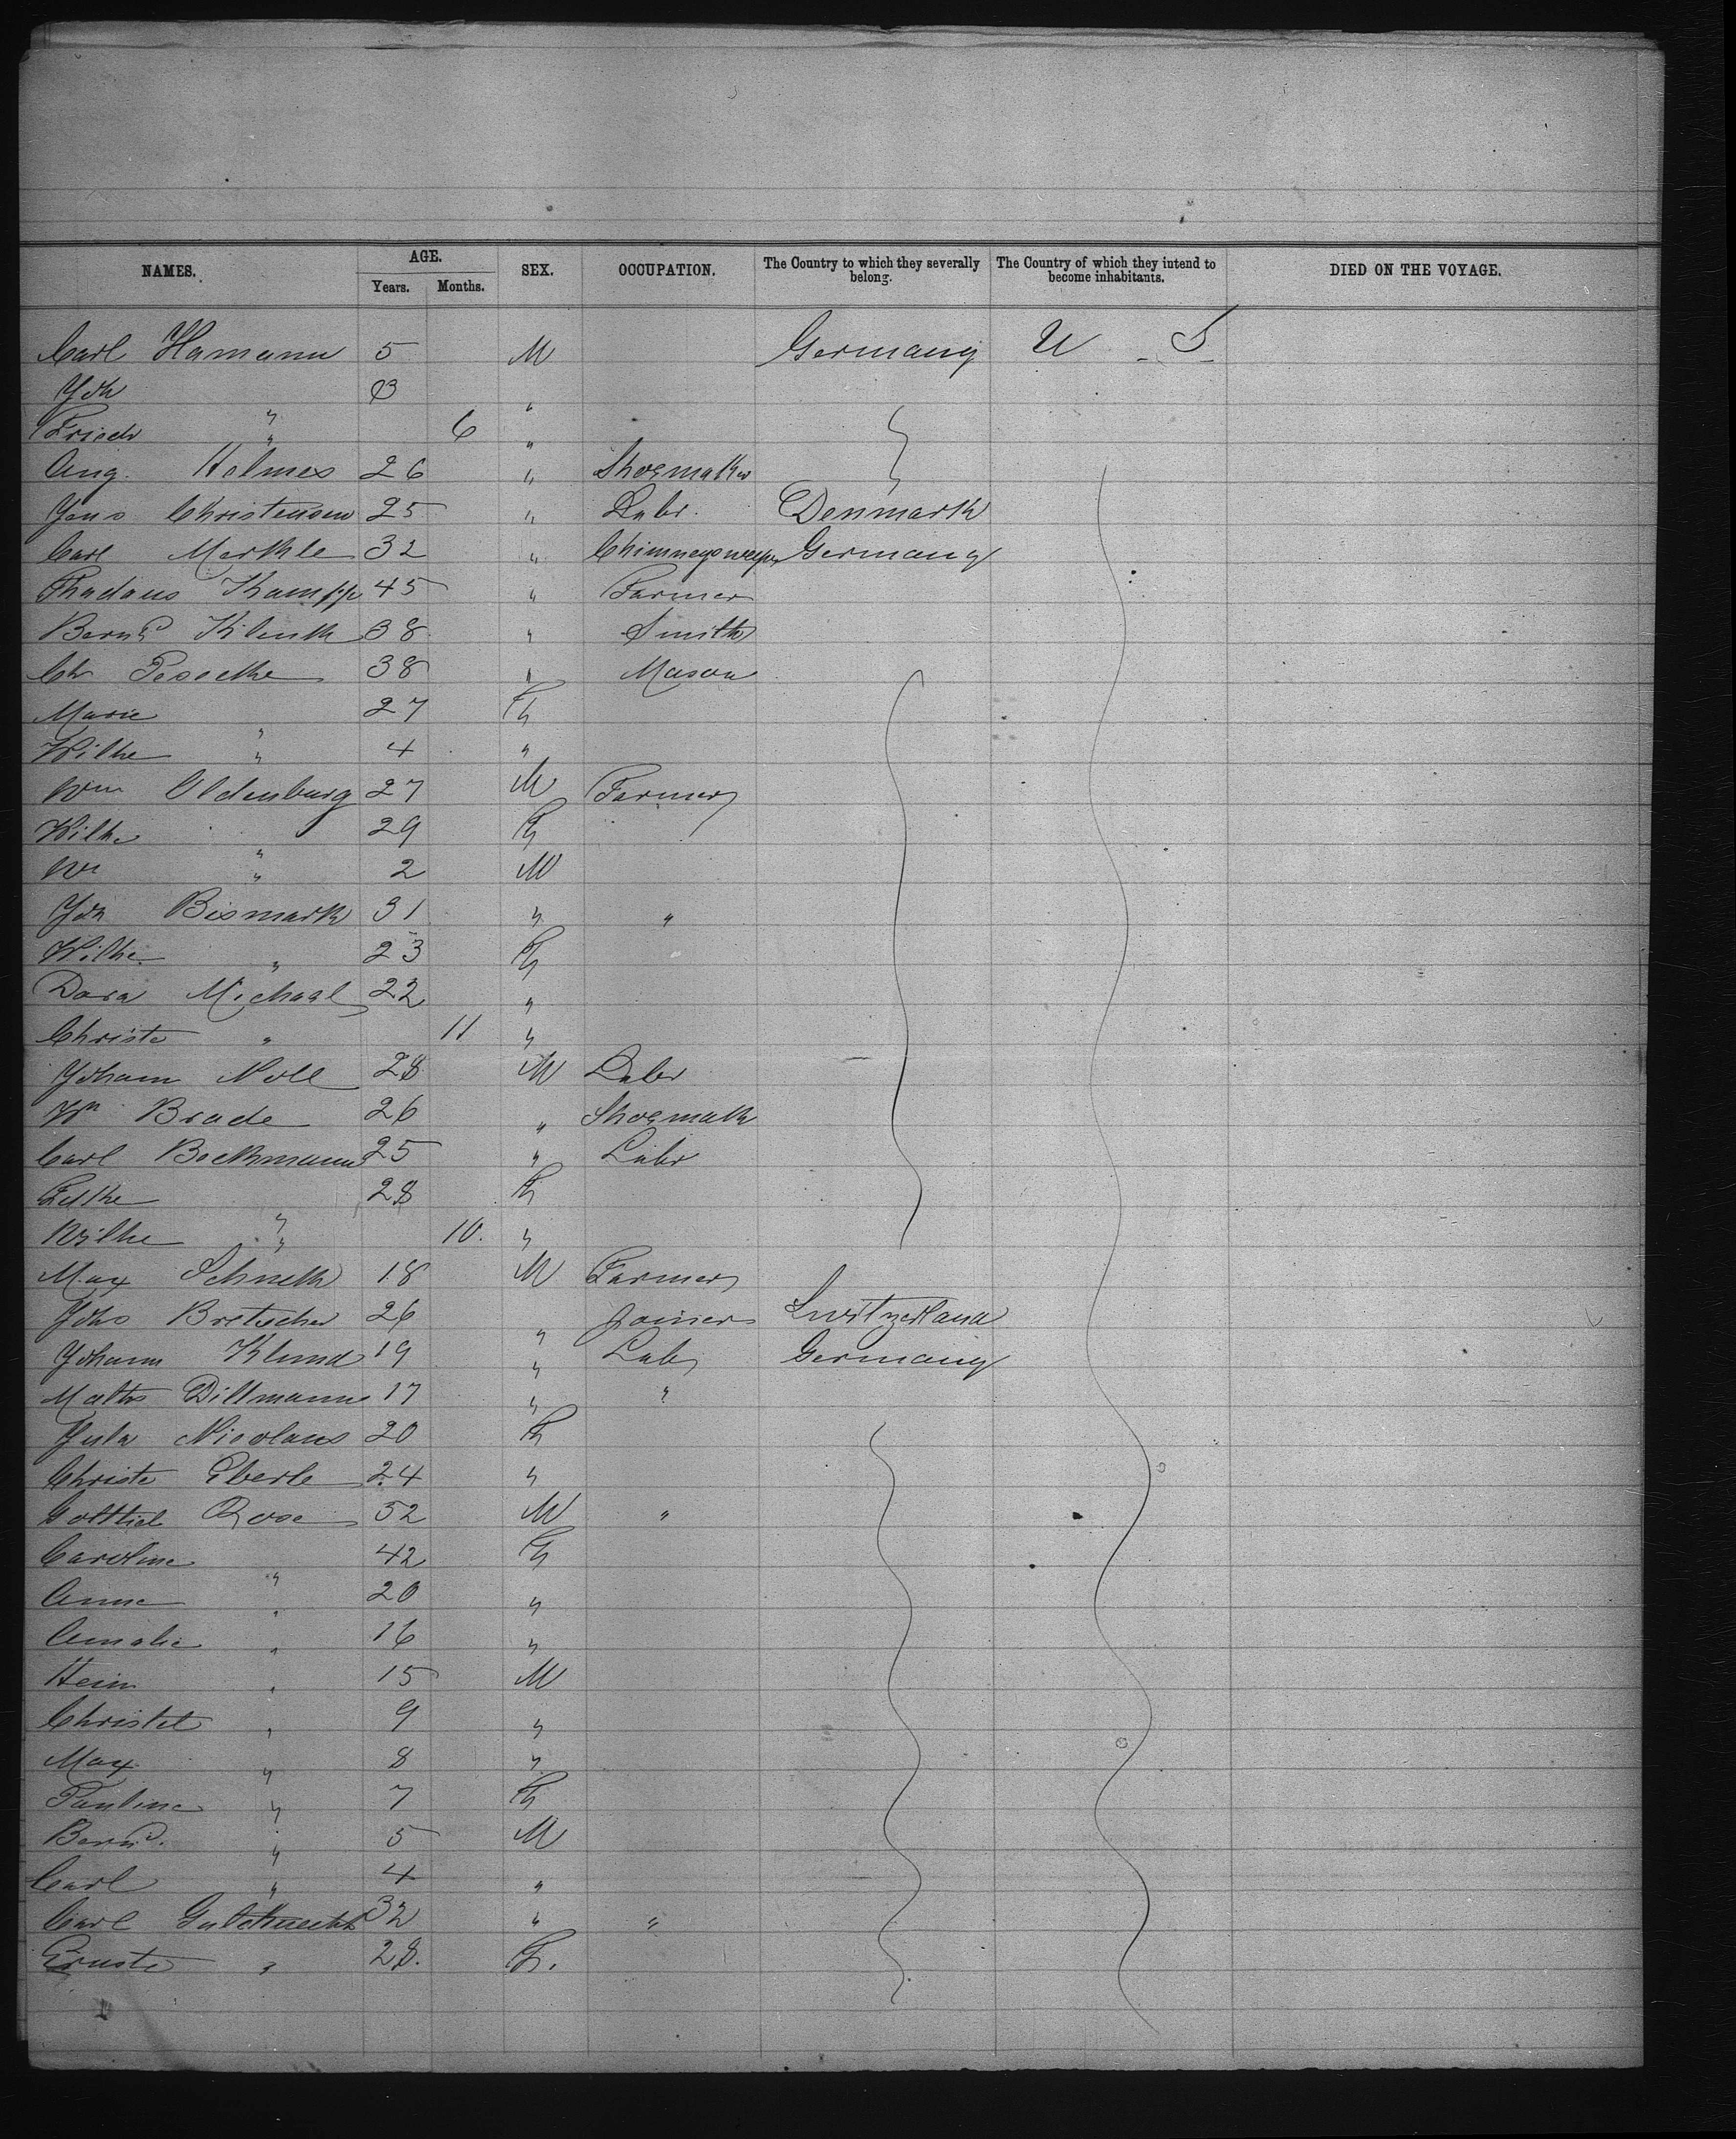 NAMES. AGE. SEX. OCCUPATION. The Country to which they severally belong. The Country of which they intend to become inhabitants. DIED ON THE VOYAGE.
Years. Months.
Carl Hamann 5 M Germany U S
Joh " 3 "
Friedr " 6 "
Aug. Holmes 26 " Shoemaker
Jens Christensen 25 " Labr. Denmark
Carl Merkle 32 " Chimneysweeper Germany
Thadaus Kampp 45 " Farmer
Bernd Klenk 38 " Smith
Ch Peseeke 38 " Mason
Marie " 27 F
Wilhe " 4 "
Wm Oldenburg 27 M Farmer
Wilhe " 29 F
Wm " 2 M
Joh Bismark 31 " "
Wilhe " 23 F
Dora Michael 22 "
Christe " 11 "
Johann Noll 28 M Labr
Wm Brade 26 " Shoemak
Carl Beckmann 25 " Labr
" 28 F
Wilhe " 10. "
Max Schneck 18 M Farmer
Johs Bretscher 26 " Joiner Switzerland
Johann Klund 19 " Lab Germany
Maths Dillmann 17 " "
Jula Nicolaus 20 F
Christe Eberle 24 "
Gottlieb Rose 52 M "
Caroline " 42 F
Anna " 20 "
Amalie " 16 "
Hein " 15 M
Christel " 9 "
Max " 8 "
Pauline " 7 F
Bernd. " 5 M
Carl " 4 "
Carl Gutknecht 32 " "
Ernste " 28. F.